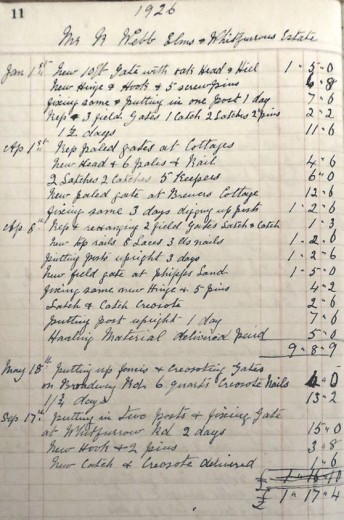 11
1926
Mr N Webb Elms & Whitfurrows Estate
Jan 1st New 10ft Gate with oak Head & Hiel 1 - 5 - 0
New Hinge & Hook & 5 screw pins 6 - 8
fixing same & putting in one post 1 day 7 - 6
Rep 3 field Gates 1 Catch 2 Latches 2 pins 2 - 2
1½ days 11 - 6
Ap 1st Rep paled gates at Cottages
New Head & 6 pales & Rail 4 - 6
2 Latches 2 Catches 5 Keepers 6 - 0
New paled gate at Brewers Cottage 12 - 6
fixing same 3 days digging up posts 1 - 2 - 6
Ap 8th Rep & rehanging 2 field Gates Latch & Catch 1 - 3
New top rails & Laces 3 lbs nails 1 - 2 - 6
putting posts upright 3 days 1 - 2 - 6
New field gate at Phipps Land 1 - 5 - 0
fixing same new Hinge & 5 pins 4 - 2
Latch & Catch Creosote 2 - 6
putting post upright 1 day 7 - 6
Hauling Material delivered 5 - 0
9 - 8 - 9
May 18th putting up & Creosoting Gates
on Broadway Rd. 6 quarts Creosote Nails 6 - 0
1½ days 13 - 2
Sep 17th putting in Two posts & fixing Gate
at Whitfurrow Rd 2 days 15 - 0
New Hook & 2 pins 3 - 8
New Catch & Creosote delivered 1 - 6
£ 1 - 16 - 10
£ 1 - 17 - 4